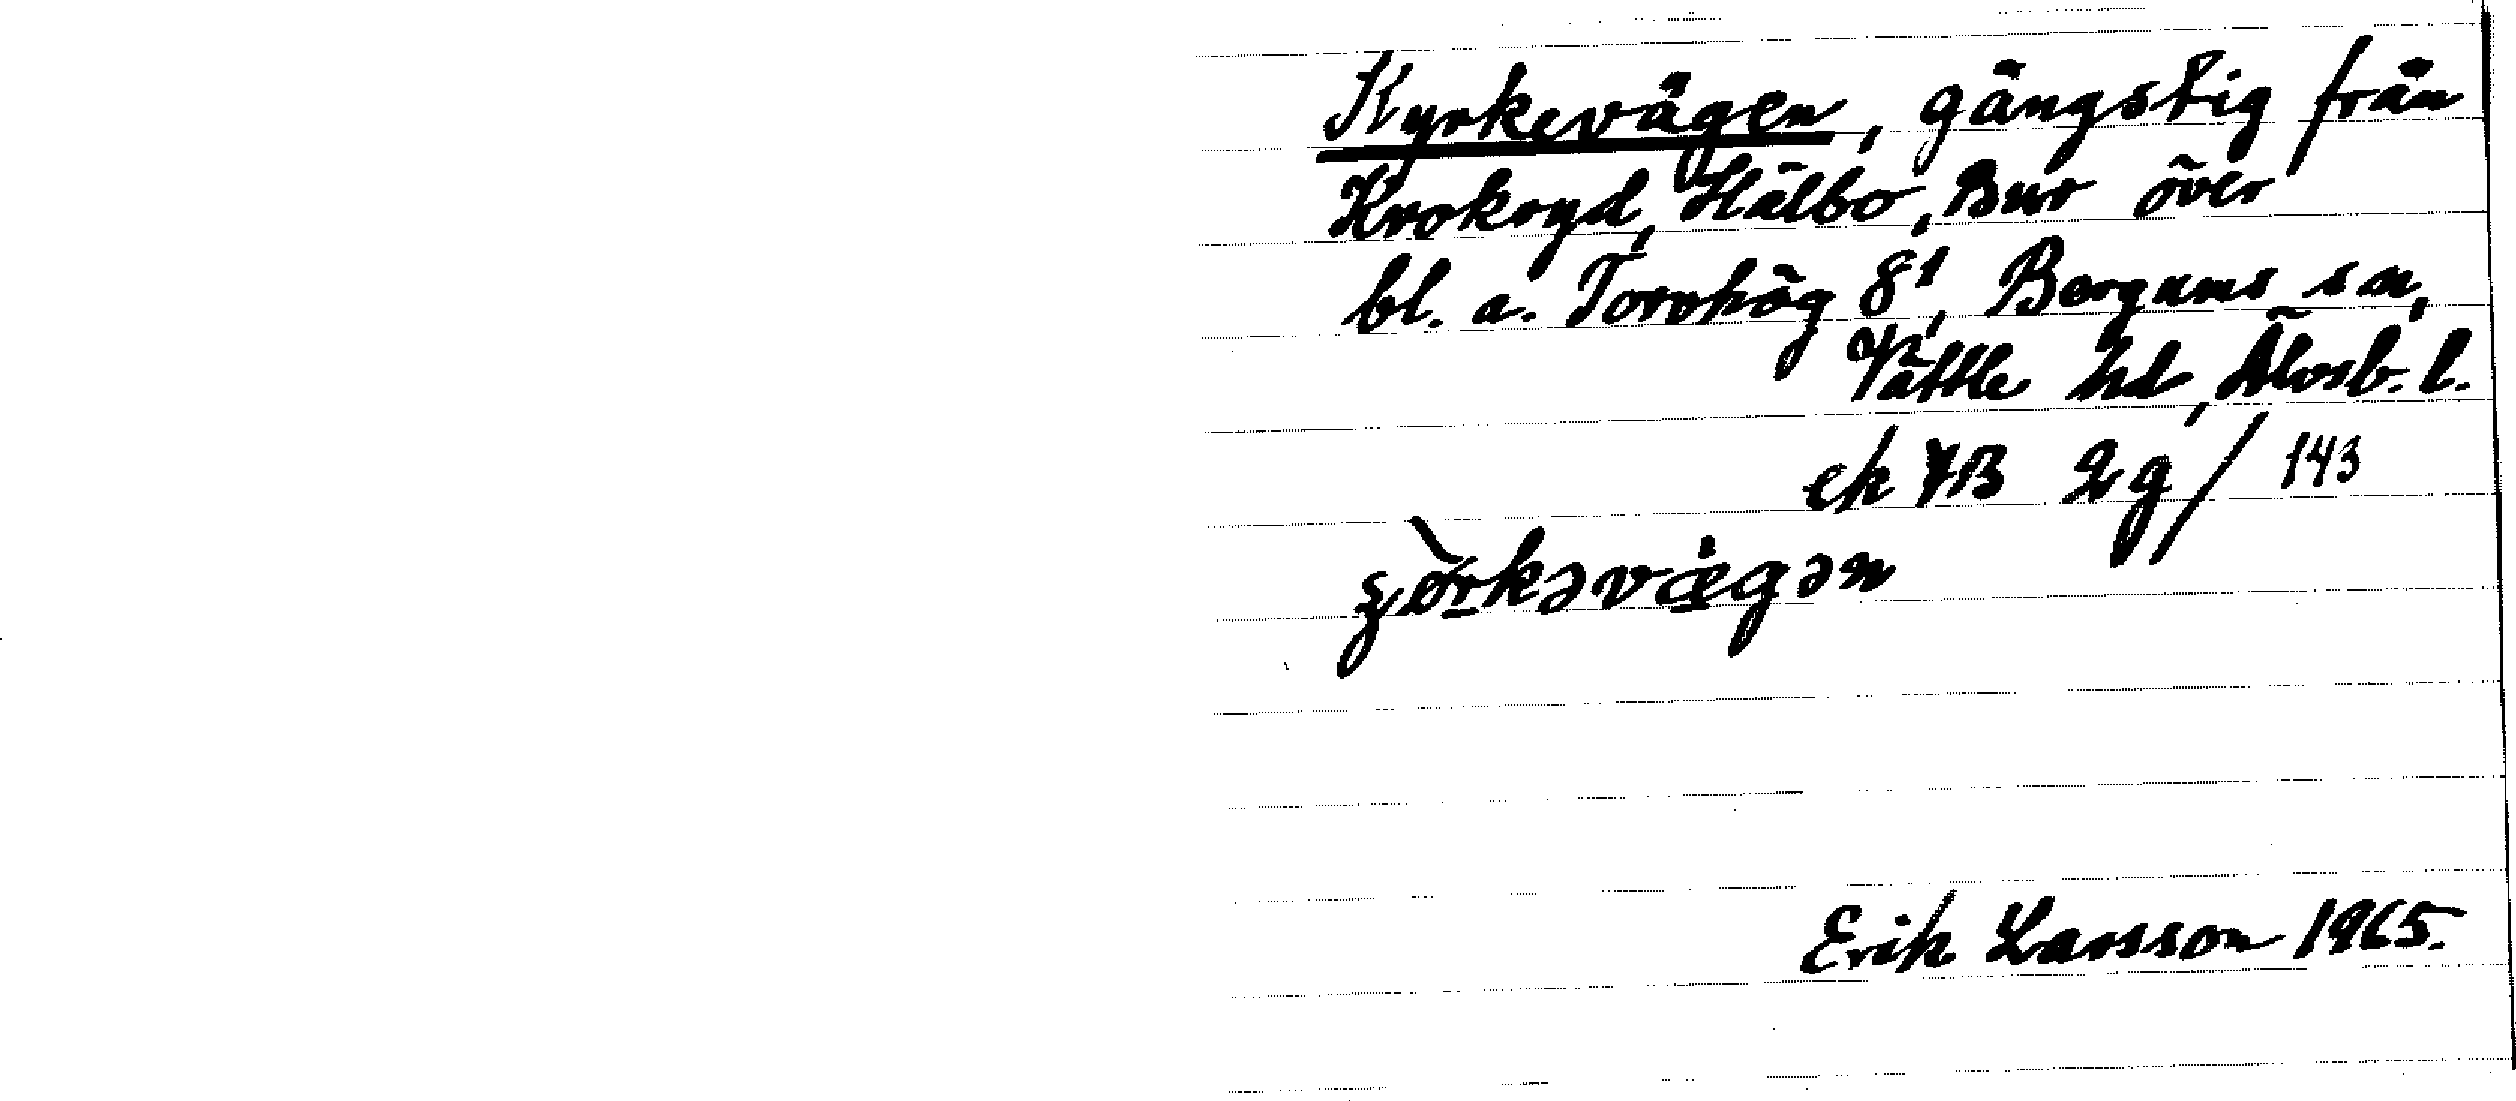 Kyrkevägen, gångstig från
Krokryd, Hälbo, Bur över
bl. a. Torrhög 8¹, Bergums sn,
Vättle hd, Älvsb. l.
ek VB 2g/143
ʒörkəvægən
Erik Larsson 1965.